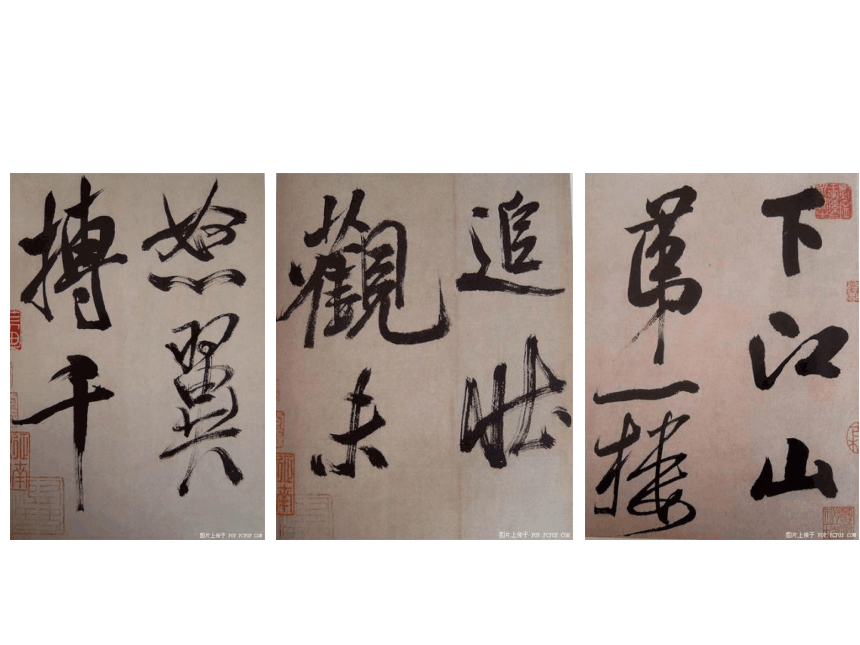 怒翼
搏千
图片上传于 POP.PCPOP.COM
追壮
觀未
图片上传于 POP.PCPOP.COM
下江山
苐一楼
图片上传于 POP.PCPOP.COM